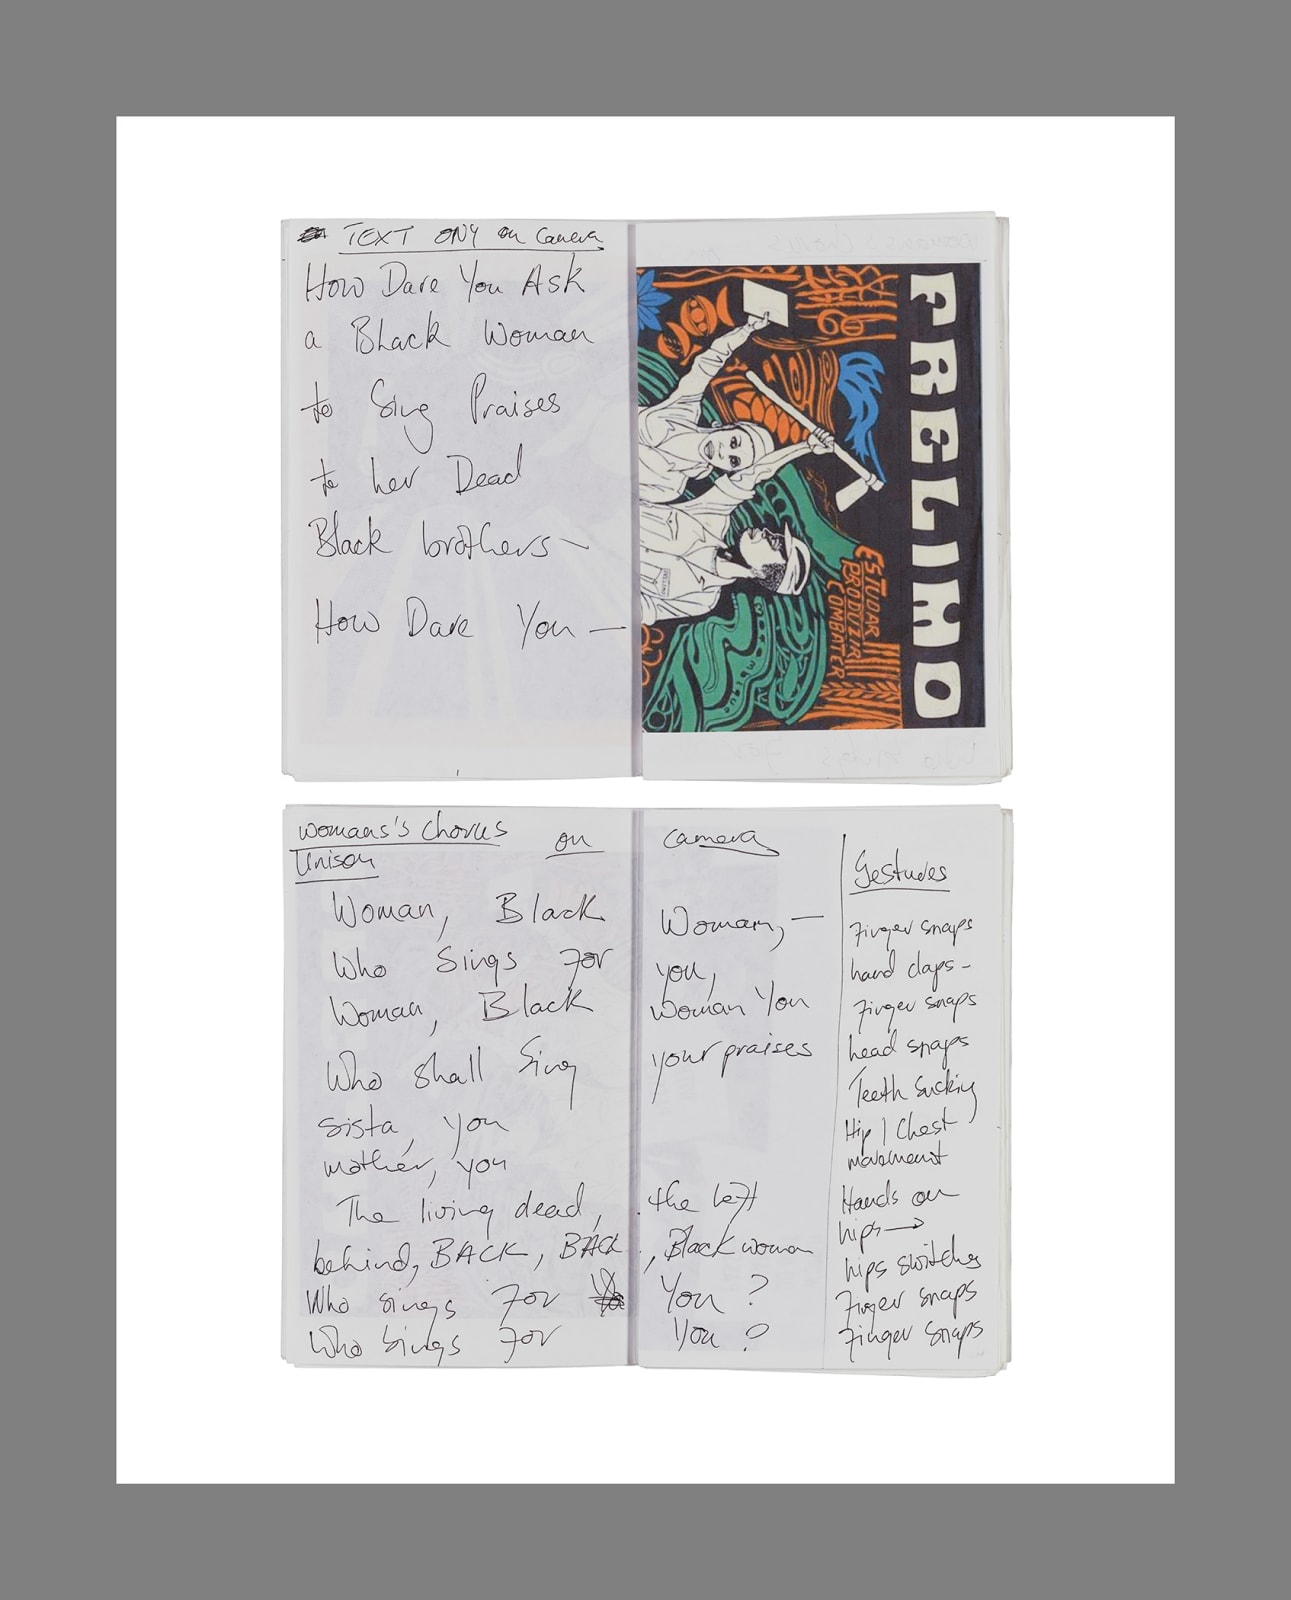 TEXT ONY on camera
How Dare You Ask
a Black Woman
to Sing Praises
to her Dead
Black brothers—
How Dare You —
FRELIMO
ESTUDAR
PRODUZIR
COMBATER
womans's Chorus on camera
Unison
Woman, Black Woman, —
Who Sings For you,
Woman, Black woman You
Who shall Sing your praises
sista, you
mother, you
The living dead, the left
behind, BACK, BACK, Black woman
Who sings For You ?
Who sings For You ?
Gestures
Finger snaps
hand claps-
Finger snaps
head snaps
Teeth Sucking
Hip / Chest
movement
Hands on
hips→
hips switches
Finger snaps
Finger snaps